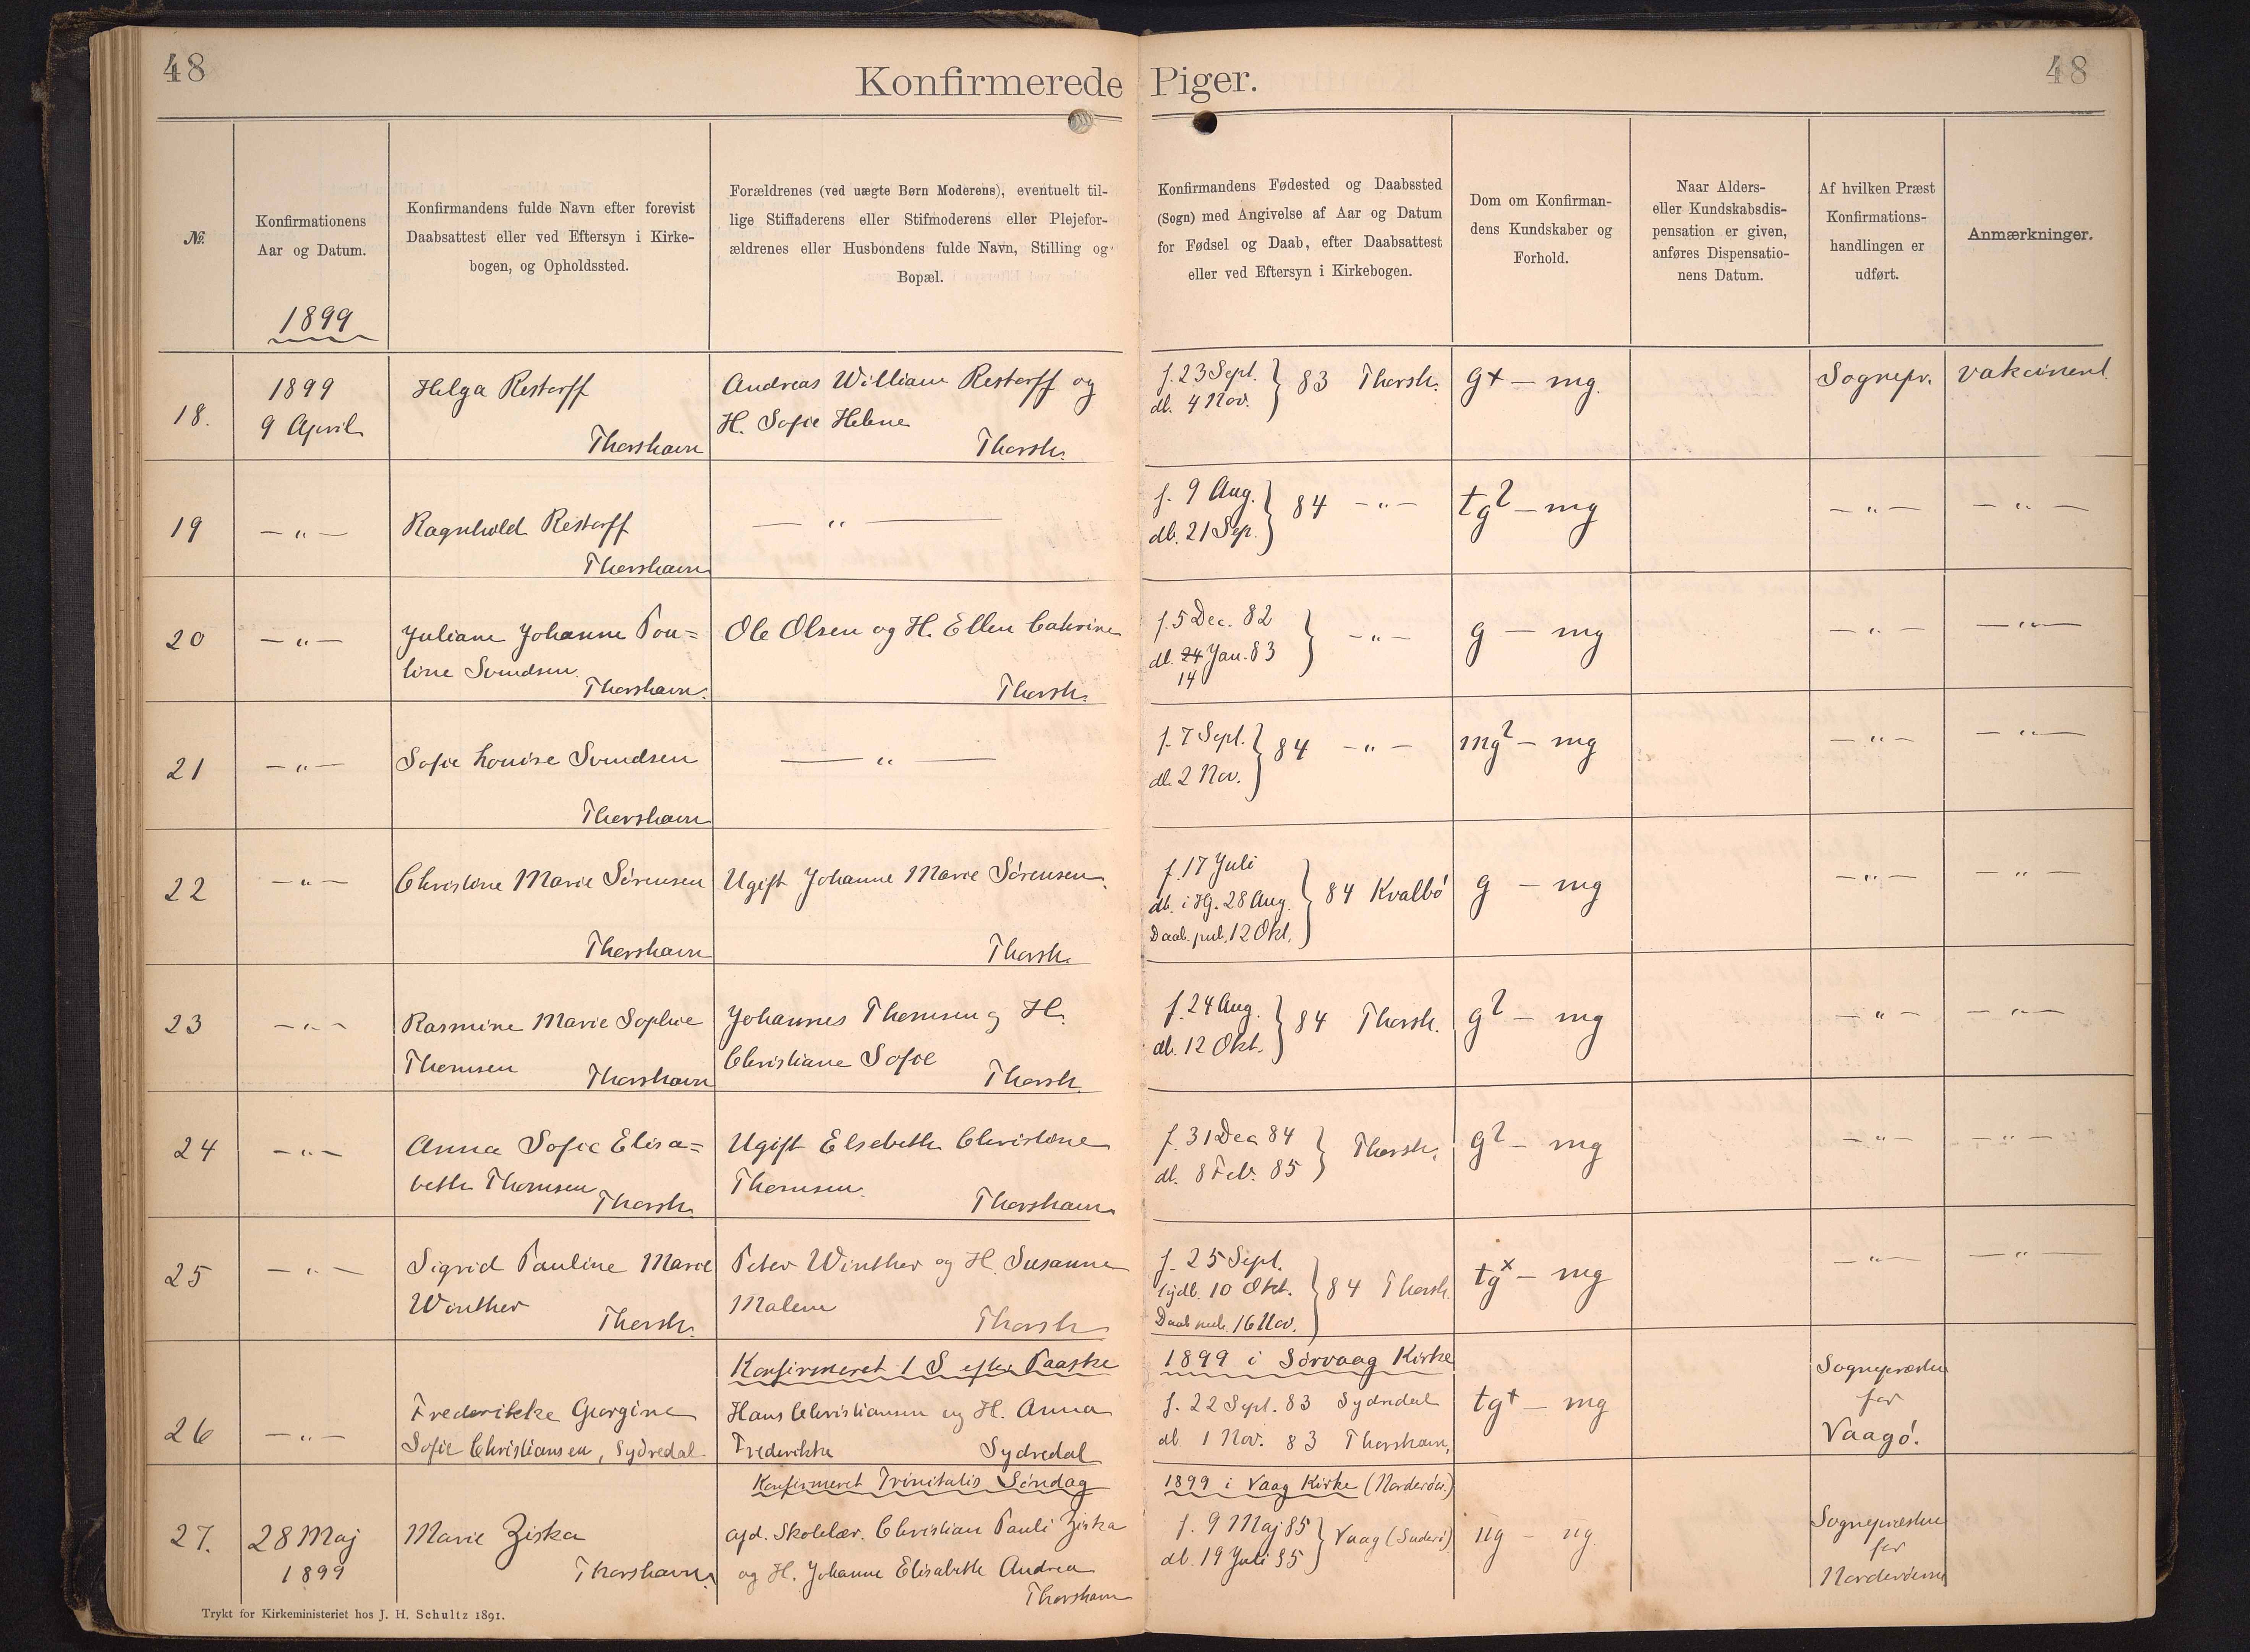 48
Konfirmerede Piger.
48
№
Konfirmationens
Aar og Datum.
1899
Konfirmandens fulde Navn efter forevist
Daabsattest eller ved Eftersyn i Kirke-
bogen, og Opholdssted.
Forældrenes (ved uægte Børn Moderens), eventuelt til-
lige Stiffaderens eller Stifmoderens eller Plejefor-
ældrenes eller Husbondens fulde Navn, Stilling og
Bopæl.
Konfirmandens Fødested og Daabssted
(Sogn) med Angivelse af Aar og Datum
for Fødsel og Daab, efter Daabsattest
eller ved Eftersyn i Kirkebogen.
Dom om Konfirman-
dens Kundskaber og
Forhold.
Naar Alders-
eller Kundskabsdis-
pensation er given,
anføres Dispensatio-
nens Datum.
Af hvilken Præst
Konfirmations-
handlingen er
udført.
Anmærkninger.
18.
1899
9 April
Helga Restorff
Thorshavn
Andreas William Restorff og
H. Sofie Helene
Thorsh.
f. 23 Sept.
db. 4 Nov.
83 Thorsh.
g+ – mg.
Sognepr.
vakcineret.
19
– " –
Ragnhild Restorff
Thorshavn
– " –
f. 9 Aug.
db. 21 Sep.
84 – " –
tg? – mg
– " –
– " –
20
– " –
Juliane Johanne Pou=
line Svendsen
Thorshavn.
Ole Olsen og H. Ellen Cahrine
Thorsh.
f. 5 Dec. 82
db. 24 Jan. 83
14
– " –
g – mg
– " –
– " –
21
– " –
Sofie Louise Svendsen
Thorshavn
– " –
f. 7 Sept.
db. 2 Nov.
84 – " –
mg? – mg
– " –
– " –
22
– " –
Christine Marie Sörensen
Thorshavn
Ugift Johanne Marie Sörensen.
Thorsh.
f. 17 Juli
db. i Hj. 28 Aug.
Daab. pub. 12 Okt.
84 Kvalbö
g – mg
– " –
– " –
23
– " –
Rasmine Marie Sophie
Thomsen
Thorshavn
Johannes Thomsen og H.
Christiane Sofie
Thorsh.
f. 24 Aug.
db. 12 Okt.
84 Thorsh.
g? – mg
– " –
– " –
24
– " –
Anna Sofie Elisa=
beth Thomsen
Thorsh.
Ugift Elsebeth Christine
Thomsen.
Thorshavn.
f. 31 Dec 84
db. 8 Feb. 85
Thorsh.
g? – mg
– " –
– " –
25
– " –
Sigrid Pauline Marie
Winther
Thorsh.
Peter Winther og H. Susanne
Malene
Thorsh
f. 25 Sept.
hjdb. 10 Okt.
Daab pub. 16 Nov.
84 Thorsh.
tg× – mg
– " –
– " –
Konfirmeret 1 S efter Paaske 1899 i Sörvaag Kirke
26
– " –
Frederikke Georgine
Sofie Christiansen, Sydredal
Hans Christiansen og H. Anna
Frederikke
Sydredal
f. 22 Sept. 83 Sydredal
db. 1 Nov. 83 Thorshavn,
tg+ – mg
Sognepræsten
for
Vaagö.
Konfirmeret Trinitatis Söndag 1899 i Vaag Kirke (Norderöer.)
27.
28 Maj
1899
Marie Ziska
Thorshavn.
afd. Skolelær. Christian Pauli Ziska
og H. Johanne Elisabeth Andrea
Thorshavn
f. 9 Maj 85
db. 19 Juli 85
Vaag (Suderö)
ug – ug.
Sognepræsten
for
Norderöerne
Trykt for Kirkeministeriet hos J. H. Schultz 1891.